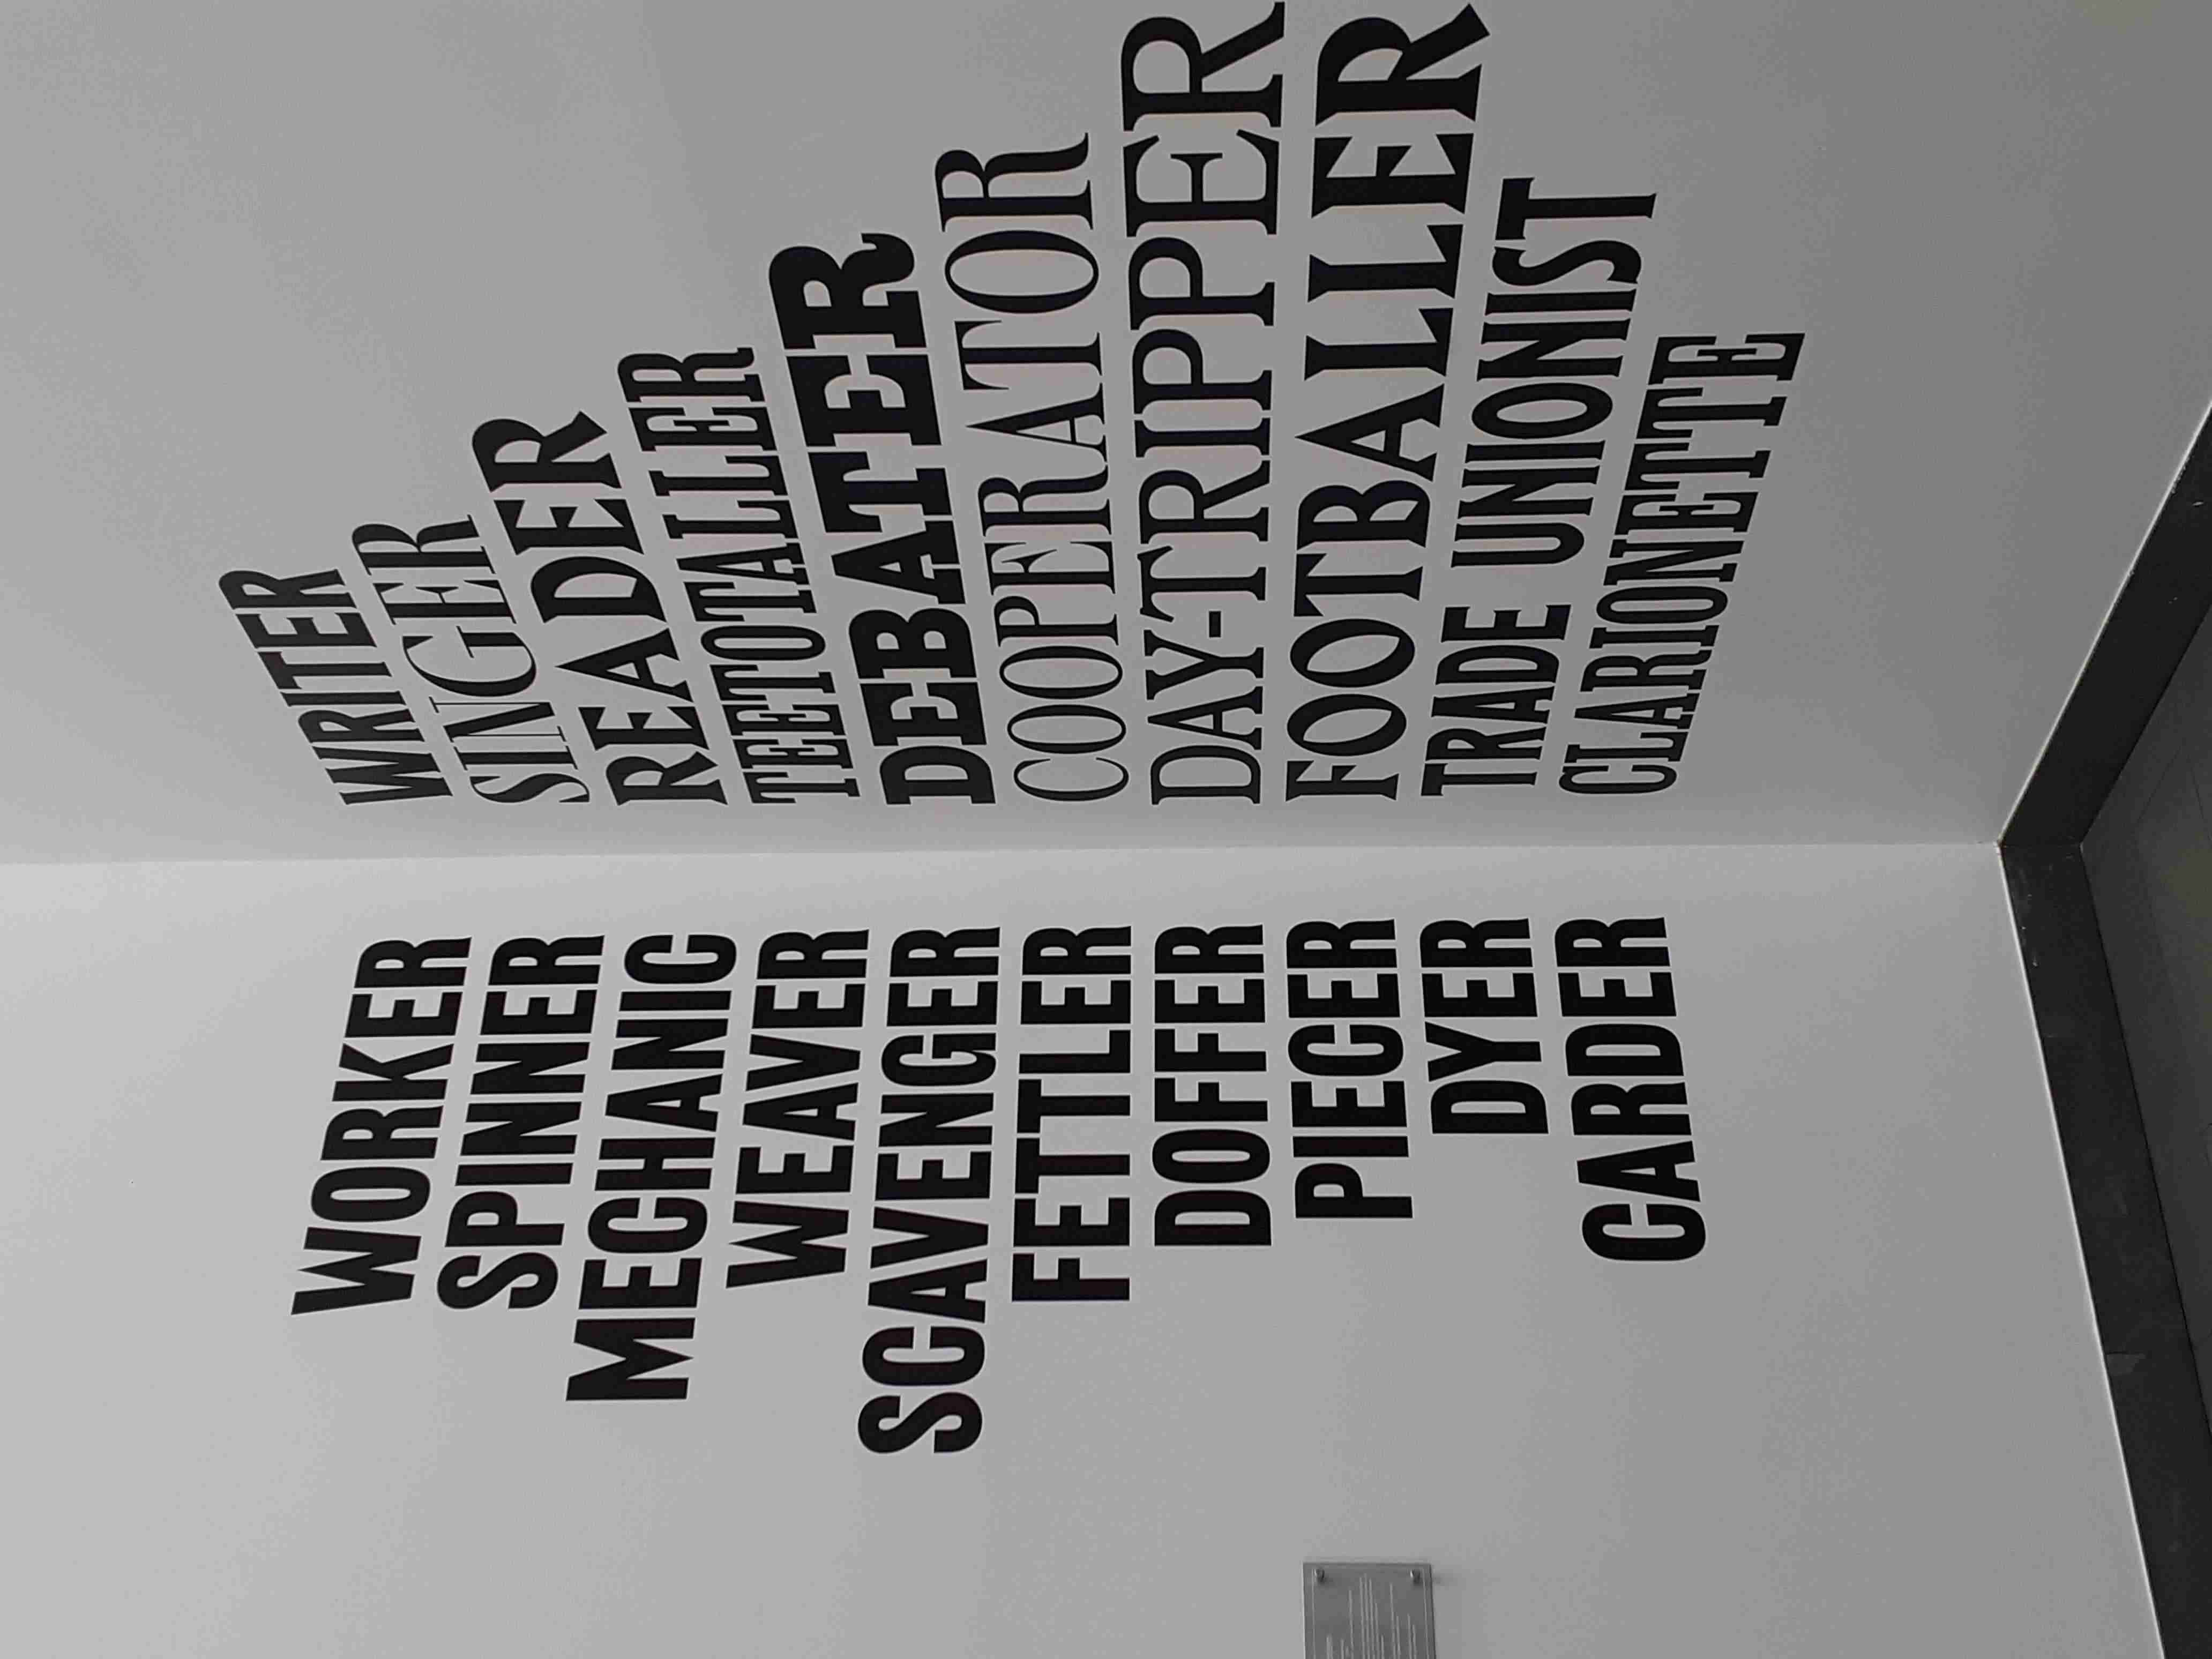 WORKER
SPINNER
MECHANIC
WEAVER
SCAVENGER
FETTLER
DOFFER
PIECER
DYER
CARDER
WRITER
SINGER
READER
TEETOTALLER
DEBATER
COOPERATOR
DAY-TRIPPER
FOOTBALLER
TRADE UNIONIST
CLARIONETTE